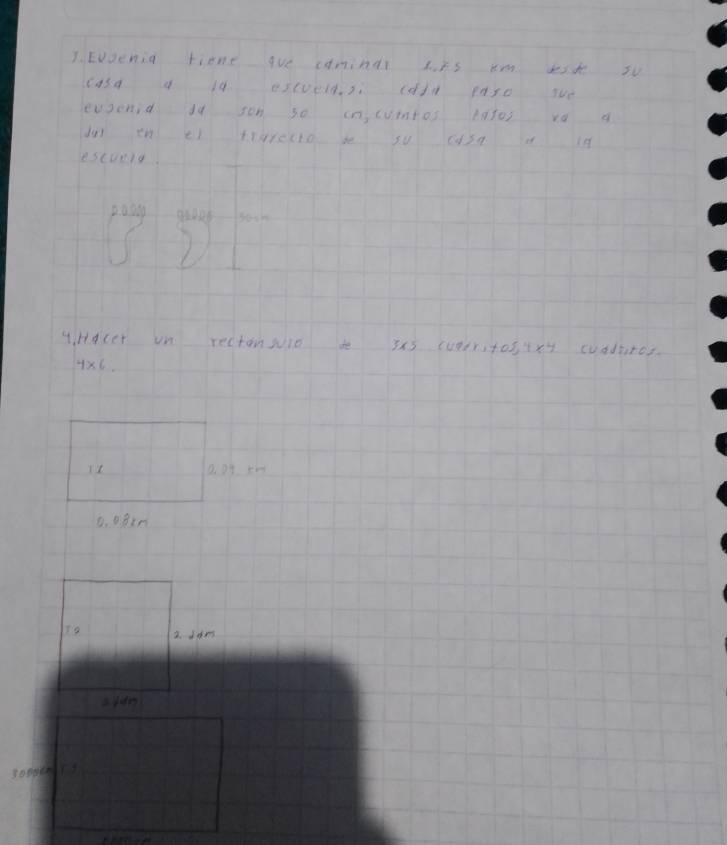 3. Eugenia tiene que caminar km desde su
casa a la escuela, si cada paso que
eugenia da son 50 cm, cuantos pasos va a
dar en el trayecto de su casa a la
escuela.
50cm
4. Hacer un rectangulo de 3x5 cuadritos, 4x4 cuadritos.
4x6.
T1
0.04 km
0.08km
T2
T3